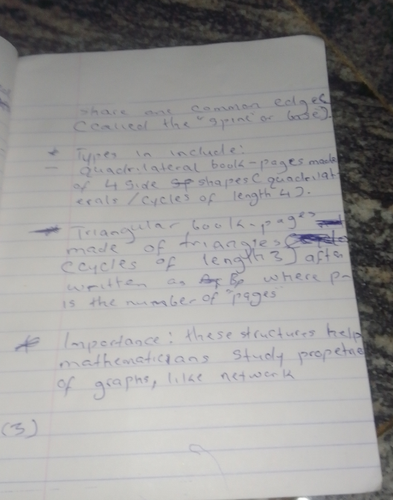 share one common edge(
(called the "spine" or base).
* Types in include:
– quadrilateral book-pages made
of 4 side shapes (quadrilat
erals / cycles of length 4).
* Triangular book-pages
made of triangles
(cycles of length 3) after
written as Bp where p-
is the number of "pages"
* Importance: these structures help
mathematicians study
of graphs, like network
(3)